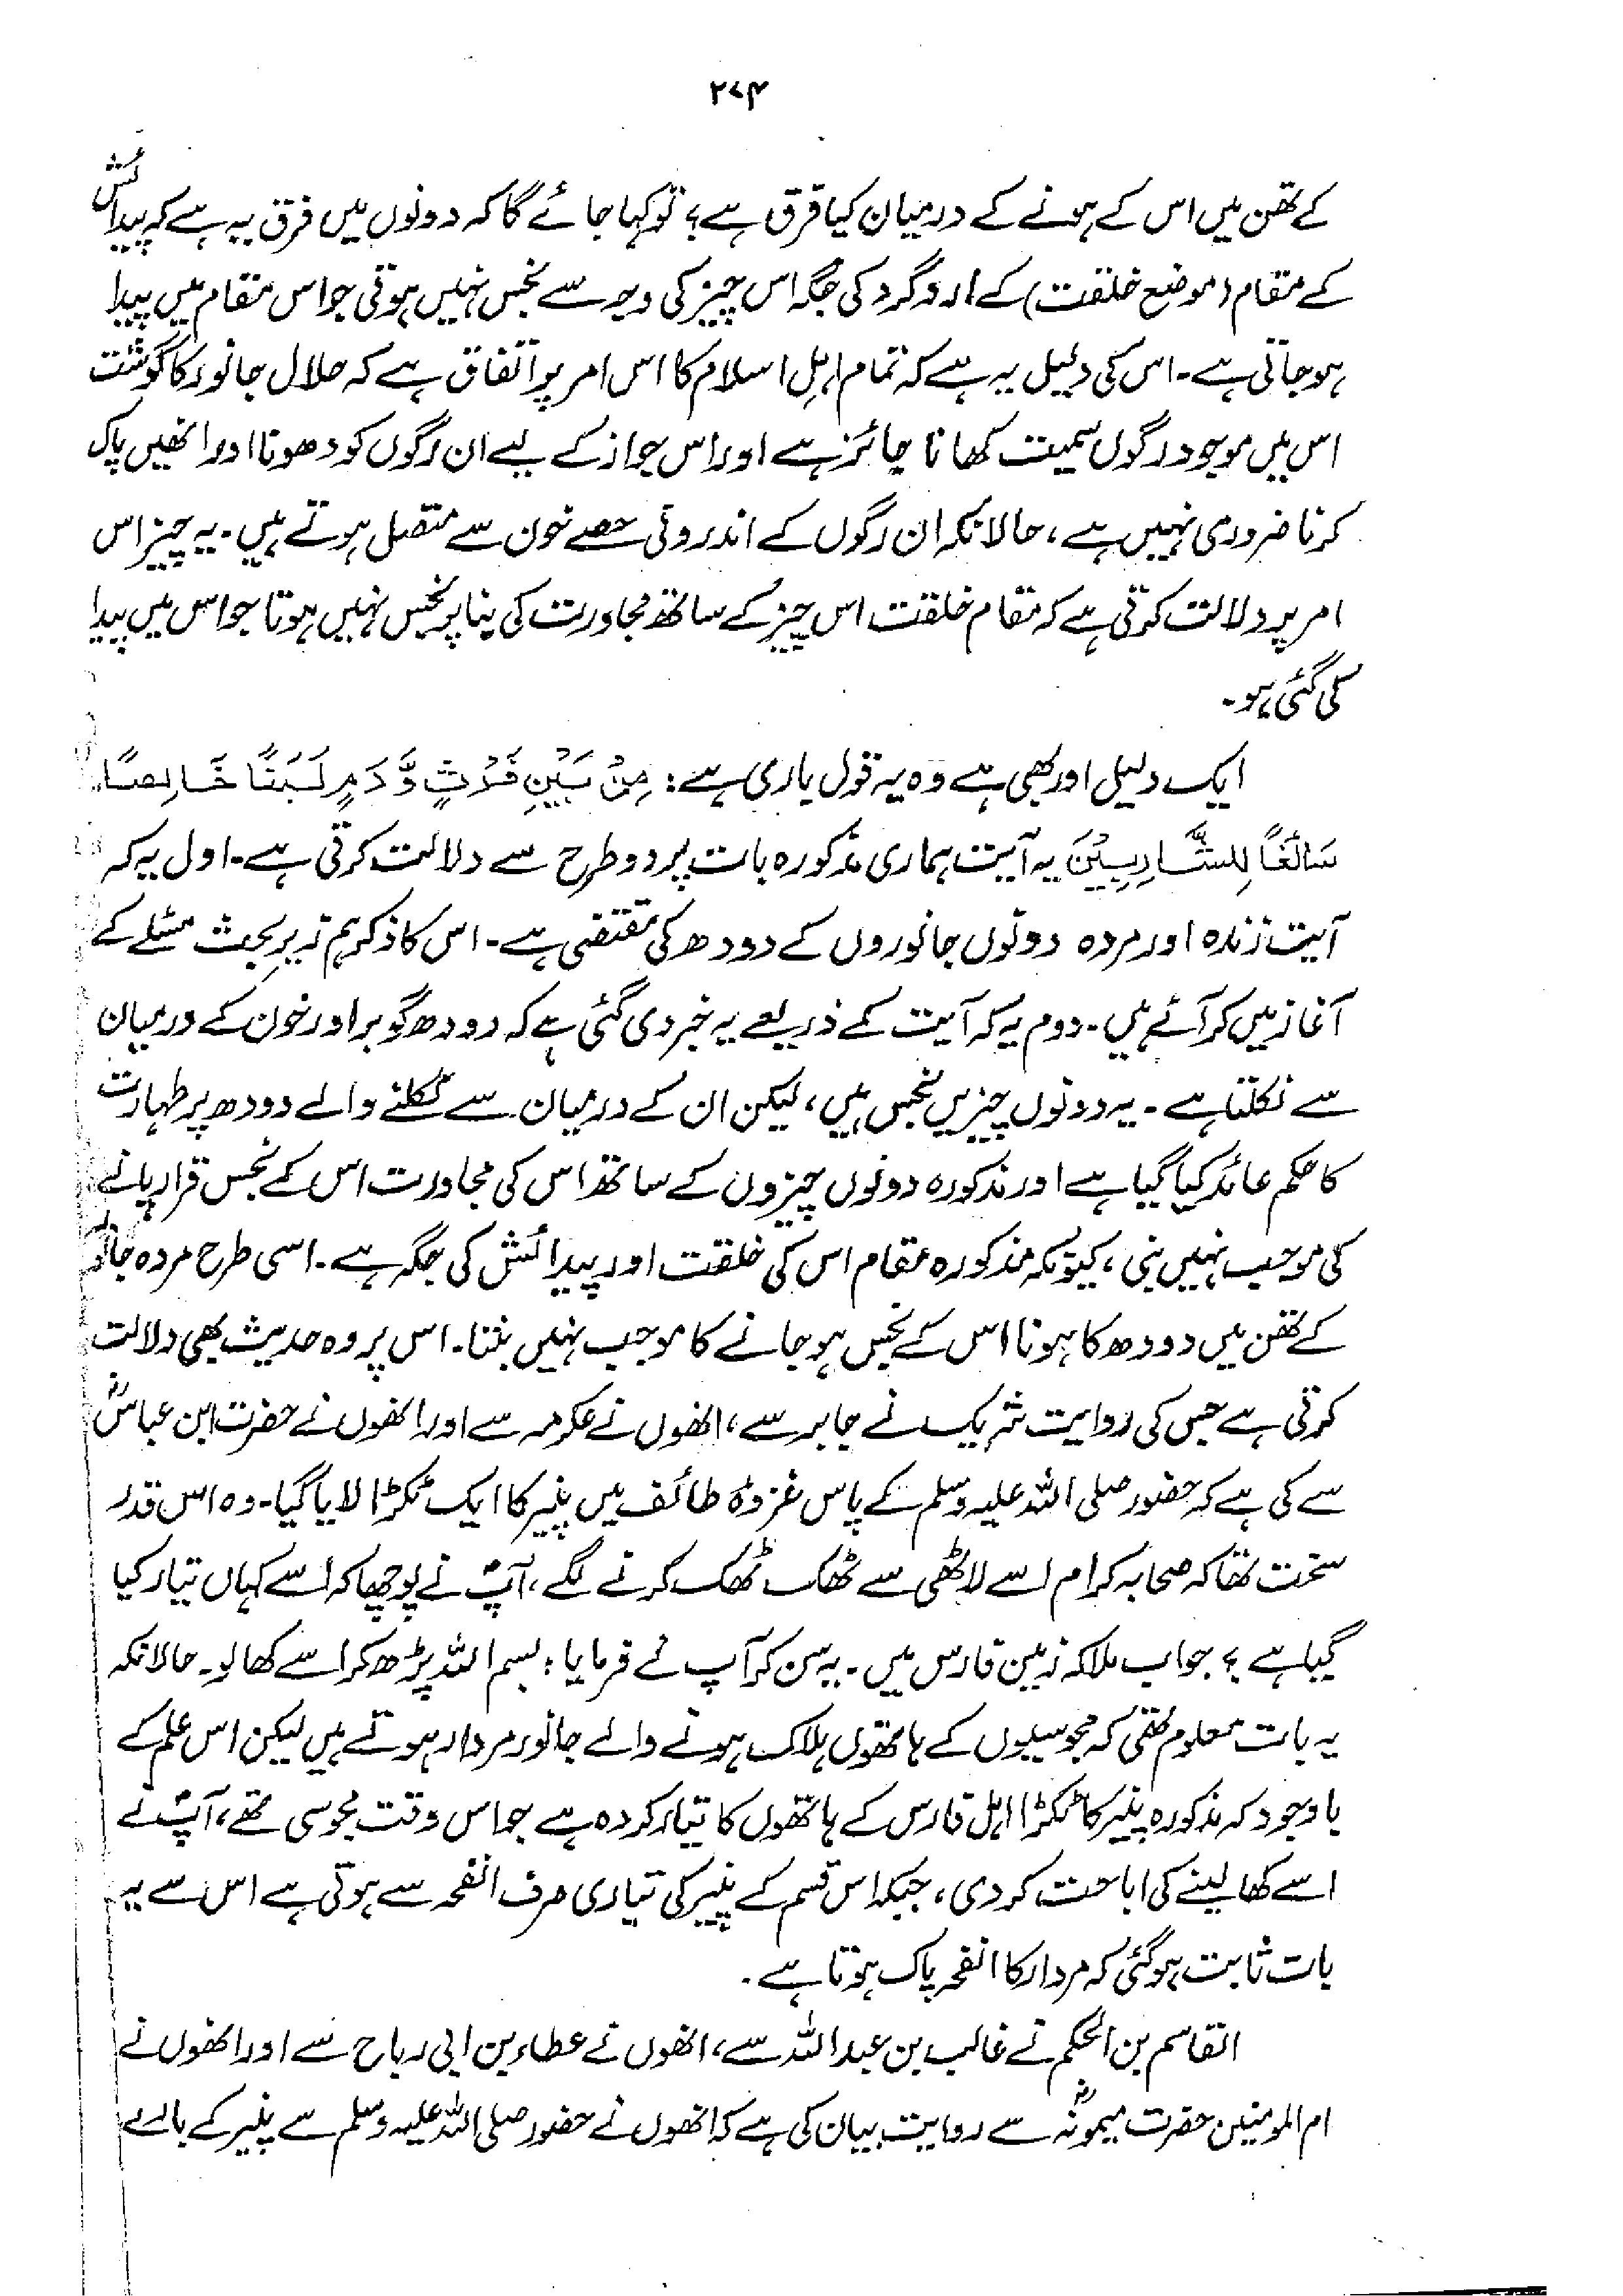 ۲۷۴
کے تھن میں اس کے ہونے کے درمیان کیا فرق ہے؟ تو کہا جائے گا کہ دونوں میں فرق یہ ہے کہ پیدائش
کے مقام (موضع خلقت) کے اردگرد کی جگہ اس چیز کی وجہ سے نجس نہیں ہوتی جو اس مقام میں پیدا
ہو جاتی ہے۔ اس کی دلیل یہ ہے کہ تمام اہلِ اسلام کا اس امر پر اتفاق ہے کہ حلال جانور کا گوشت
اس میں موجود رگوں سمیت کھانا جائز ہے اور اس جواز کے لیے ان رگوں کو دھونا اور انھیں پاک
کرنا ضروری نہیں ہے، حالانکہ ان رگوں کے اندرونی حصے خون سے متصل ہوتے ہیں۔ یہ چیز اس
امر پر دلالت کرتی ہے کہ مقام خلقت اس چیز کے ساتھ مجاورت کی بنا پر نجس نہیں ہوتا جو اس میں پیدا
کی گئی ہو۔
ایک دلیل اور بھی ہے وہ یہ قول باری ہے: مِنْ بَيْنِ فَرْثٍ وَّدَمٍ لَبَنًا خَالِصًا
سَائِغًا لِلشَّارِبِيْنَ یہ آیت ہماری مذکورہ بات پر دو طرح سے دلالت کرتی ہے۔ اول یہ کہ
آیت زندہ اور مردہ دونوں جانوروں کے دودھ کی مقتضی ہے۔ اس کا ذکر ہم زیرِ بحث مسئلے کے
آغاز میں کر آئے ہیں۔ دوم یہ کہ آیت کے ذریعے یہ خبر دی گئی ہے کہ دودھ گوبر اور خون کے درمیان
سے نکلتا ہے۔ یہ دونوں چیزیں نجس ہیں، لیکن ان کے درمیان سے نکلنے والے دودھ پر طہارت
کا حکم عائد کیا گیا ہے اور مذکورہ دونوں چیزوں کے ساتھ اس کی مجاورت اس کے نجس قرار پانے
کی موجب نہیں بنی، کیونکہ مذکورہ مقام اس کی خلقت اور پیدائش کی جگہ ہے۔ اسی طرح مردہ جانور
کے تھن میں دودھ کا ہونا اس کے نجس ہو جانے کا موجب نہیں بنتا۔ اس پر وہ حدیث بھی دلالت
کرتی ہے جس کی روایت شریک نے جابر سے، انھوں نے عکرمہ سے اور انھوں نے حضرت ابن عباسؓ
سے کی ہے کہ حضور صلی اللہ علیہ وسلم کے پاس غزوۂ طائف میں پنیر کا ایک ٹکڑا لایا گیا۔ وہ اس قدر
سخت تھا کہ صحابہ کرام اسے لاٹھی سے ٹھک ٹھک کرنے لگے، آپؐ نے پوچھا کہ اسے کہاں تیار کیا
گیا ہے؟ جواب ملا کہ زمین فارس میں۔ یہ سن کر آپ نے فرمایا: بسم اللہ پڑھ کر اسے کھا لو۔ حالانکہ
یہ بات معلوم تھی کہ مجوسیوں کے ہاتھوں ہلاک ہونے والے جانور مردار ہوتے ہیں لیکن اس علم کے
باوجود کہ مذکورہ پنیر کا ٹکڑا اہل فارس کے ہاتھوں کا تیار کردہ ہے جو اس وقت مجوسی تھے، آپؐ نے
اسے کھا لینے کی اباحت کر دی، جبکہ اس قسم کے پنیر کی تیاری صرف انفحہ سے ہوتی ہے اس سے یہ
بات ثابت ہو گئی کہ مردار کا انفحہ پاک ہوتا ہے۔
القاسم بن الحکم نے غالب بن عبداللہ سے، انھوں نے عطاء بن ابی رباح سے اور انھوں نے
ام المومنین حضرت میمونہؓ سے روایت بیان کی ہے کہ انھوں نے حضور صلی اللہ علیہ وسلم سے پنیر کے بارے